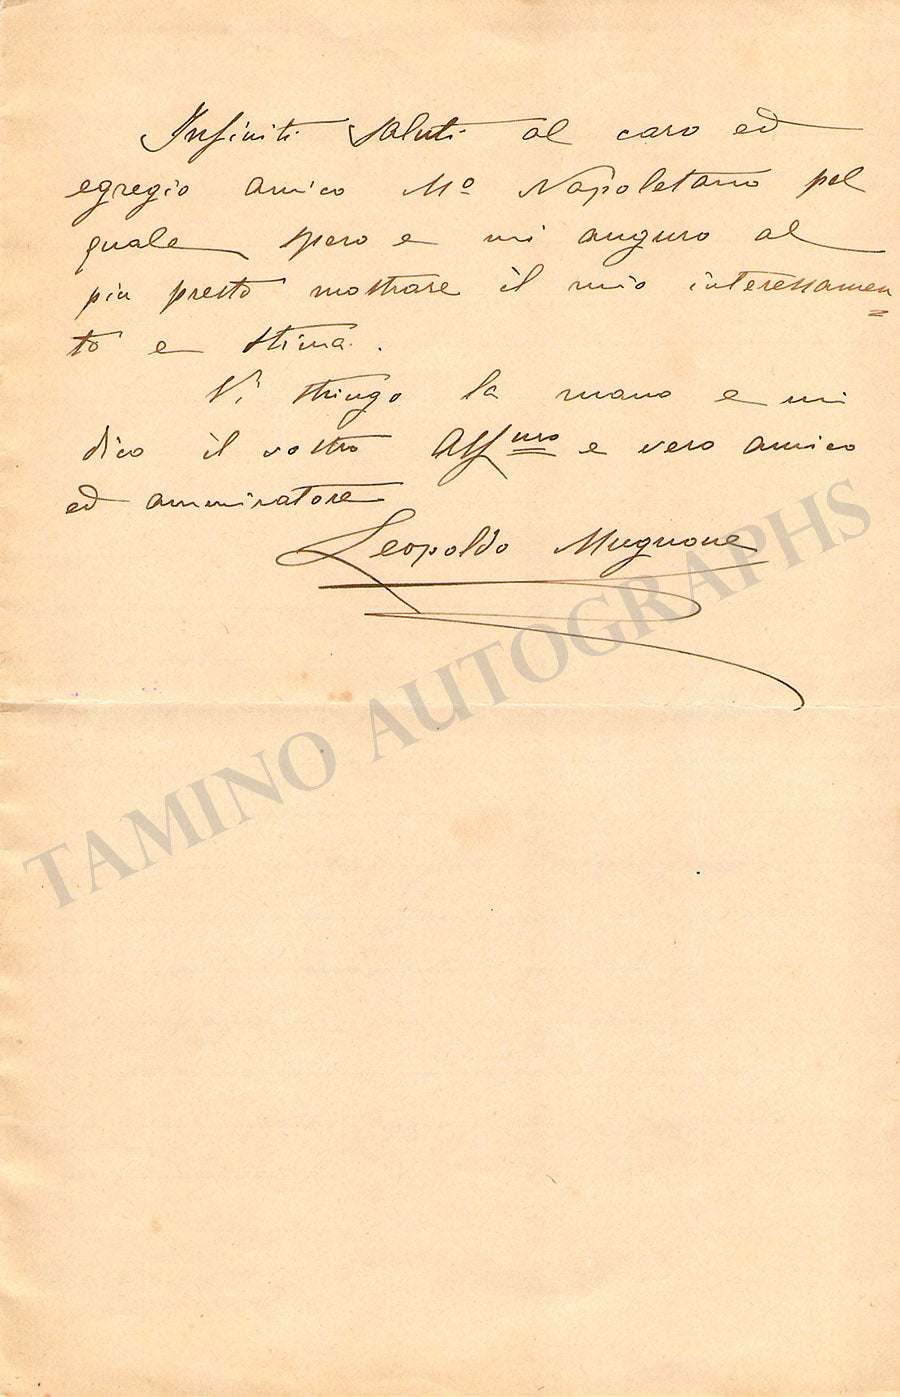 Infiniti saluti al caro ed
egregio amico Mº Napoletano pel
quale spero e mi auguro al
piu presto mostrare il mio interessamen=
to e stima.
Vi stringo la mano e mi
dico il vostro Aff.mo e vero amico
ed ammiratore
Leopoldo Mugnone
TAMINO AUTOGRAPHS